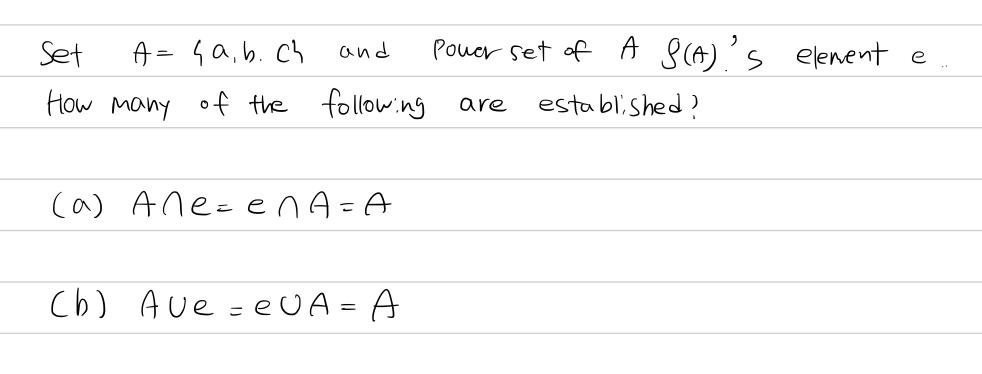 Set A = {a, b. c} and Power set of A ℘(A).'s element e ..
How many of the following are established?
(a) A∩e = e∩A = A
(b) A∪e = e∪A = A